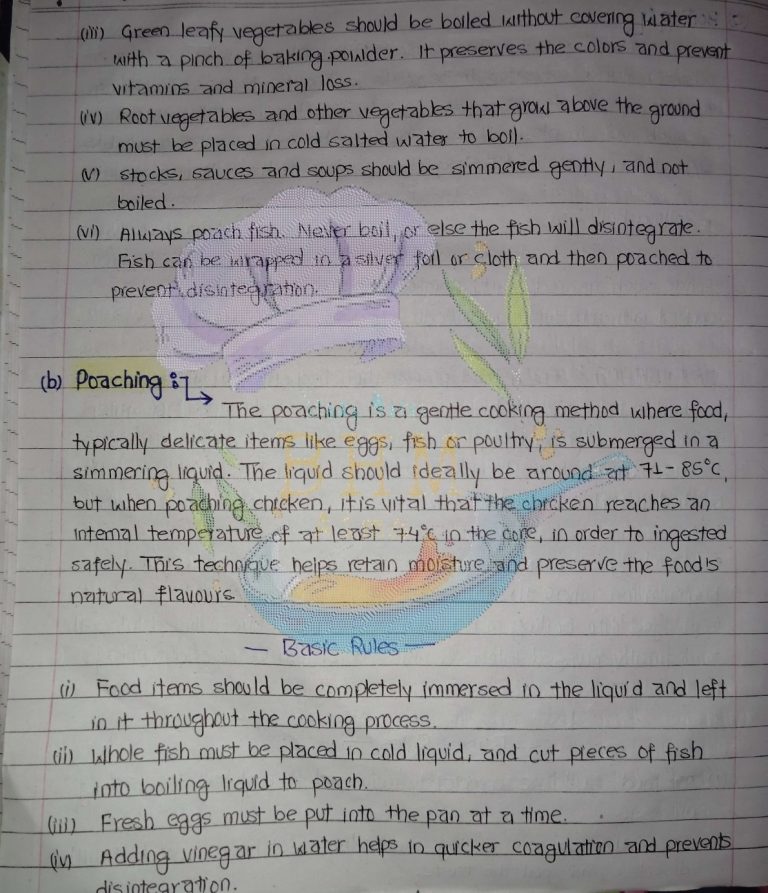 (iii) Green leafy vegetables should be boiled without covering water
with a pinch of baking powder. It preserves the colors and prevent
vitamins and mineral loss.
(iv) Root vegetables and other vegetables that grow above the ground
must be placed in cold salted water to boil.
(v) stocks, sauces and soups should be simmered gently, and not
boiled.
(vi) Always poach fish. Never boil, or else the fish will disintegrate.
Fish can be wrapped in a silver foil or cloth and then poached to
prevent disintegration.
(b) Poaching :↳
The poaching is a gentle cooking method where food,
typically delicate items like eggs, fish or poultry, is submerged in a
simmering liquid. The liquid should ideally be around at 71-85°C,
but when poaching chicken, it is vital that the chicken reaches an
internal temperature of at least 74°C in the core, in order to ingested
safely. This technique helps retain moisture and preserve the food's
natural flavours
— Basic Rules —
(i) Food items should be completely immersed in the liquid and left
in it throughout the cooking process.
(ii) Whole fish must be placed in cold liquid, and cut pieces of fish
into boiling liquid to poach.
(iii) Fresh eggs must be put into the pan at a time.
(iv) Adding vinegar in water helps in quicker coagulation and prevents
disintegration.